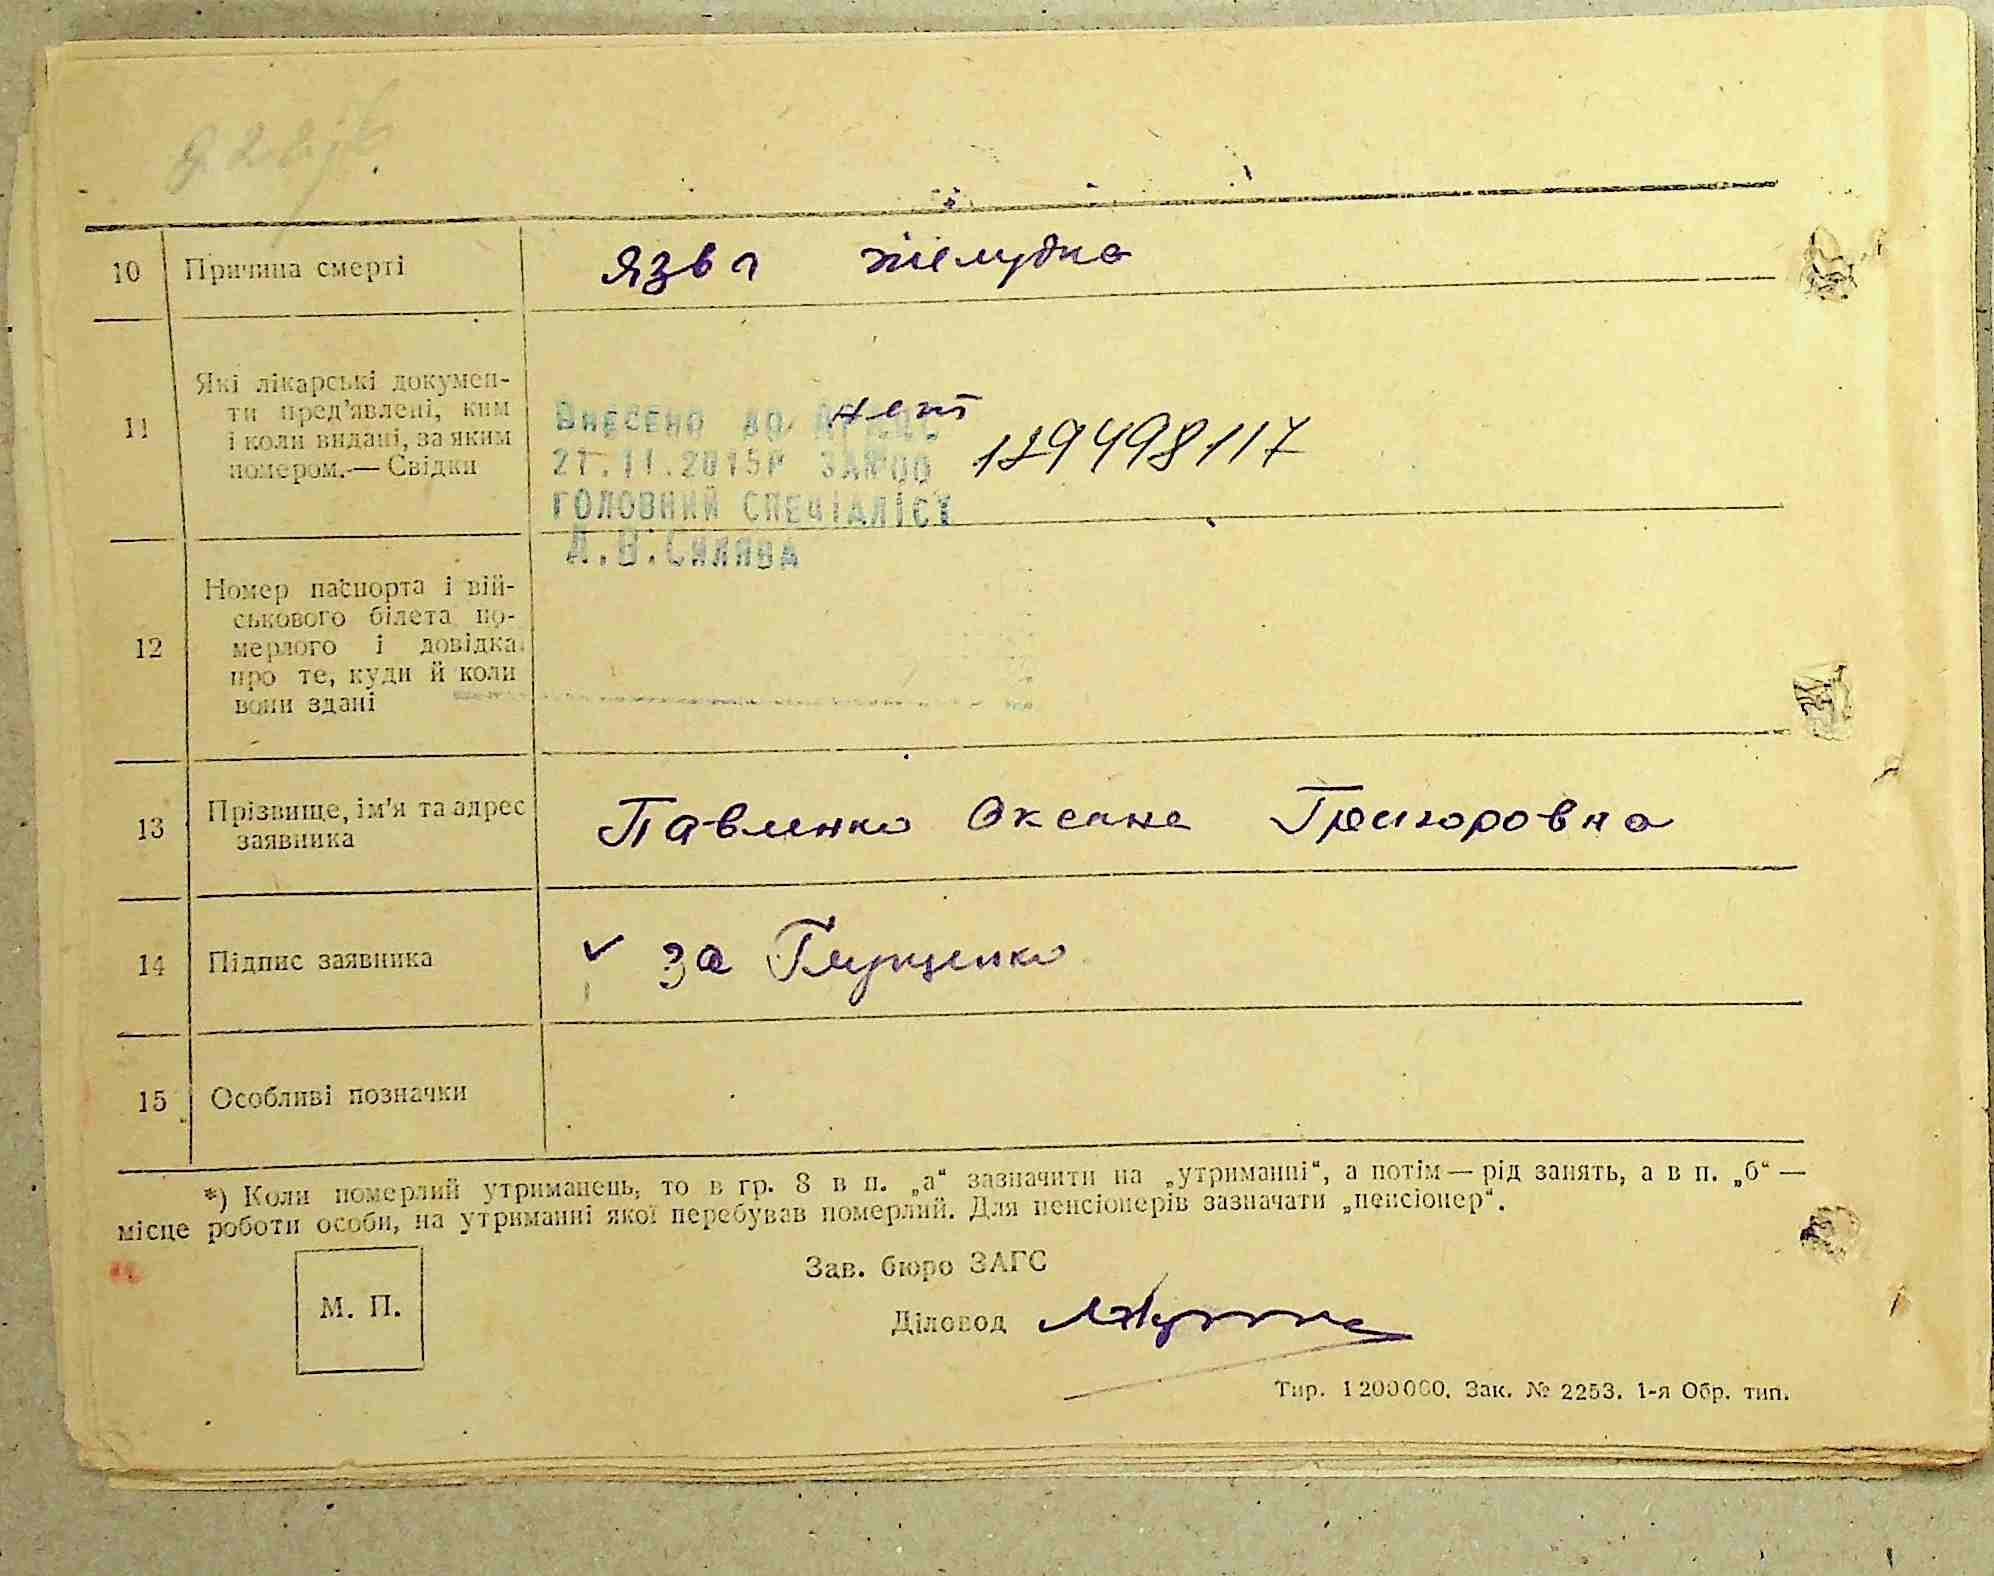 10 Причина смерті язва желудка
11 Які лікарські документи пред'явлені, ким і коли видані, за яким номером.— Свідки нет
Внесено до
27.11.2015р за №00 129498117
головний спеціаліст
12 Номер паспорта і військового білета померлого і довідка про те, куди й коли вони здані
13 Прізвище, ім'я та адрес заявника Павленко Оксана Григоровна
14 Підпис заявника за Глущенко
15 Особливі позначки
*) Коли померлий утриманець, то в гр. 8 в п. „а“ зазначити на „утриманні“, а потім — рід занять, а в п. „б“ —
місце роботи особи, на утриманні якої перебував померлий. Для пенсіонерів зазначати „пенсіонер“.
Зав. бюро ЗАГС
М. П.
Діловод
Тир. 1200000. Зак. № 2253. 1-я Обр. тип.